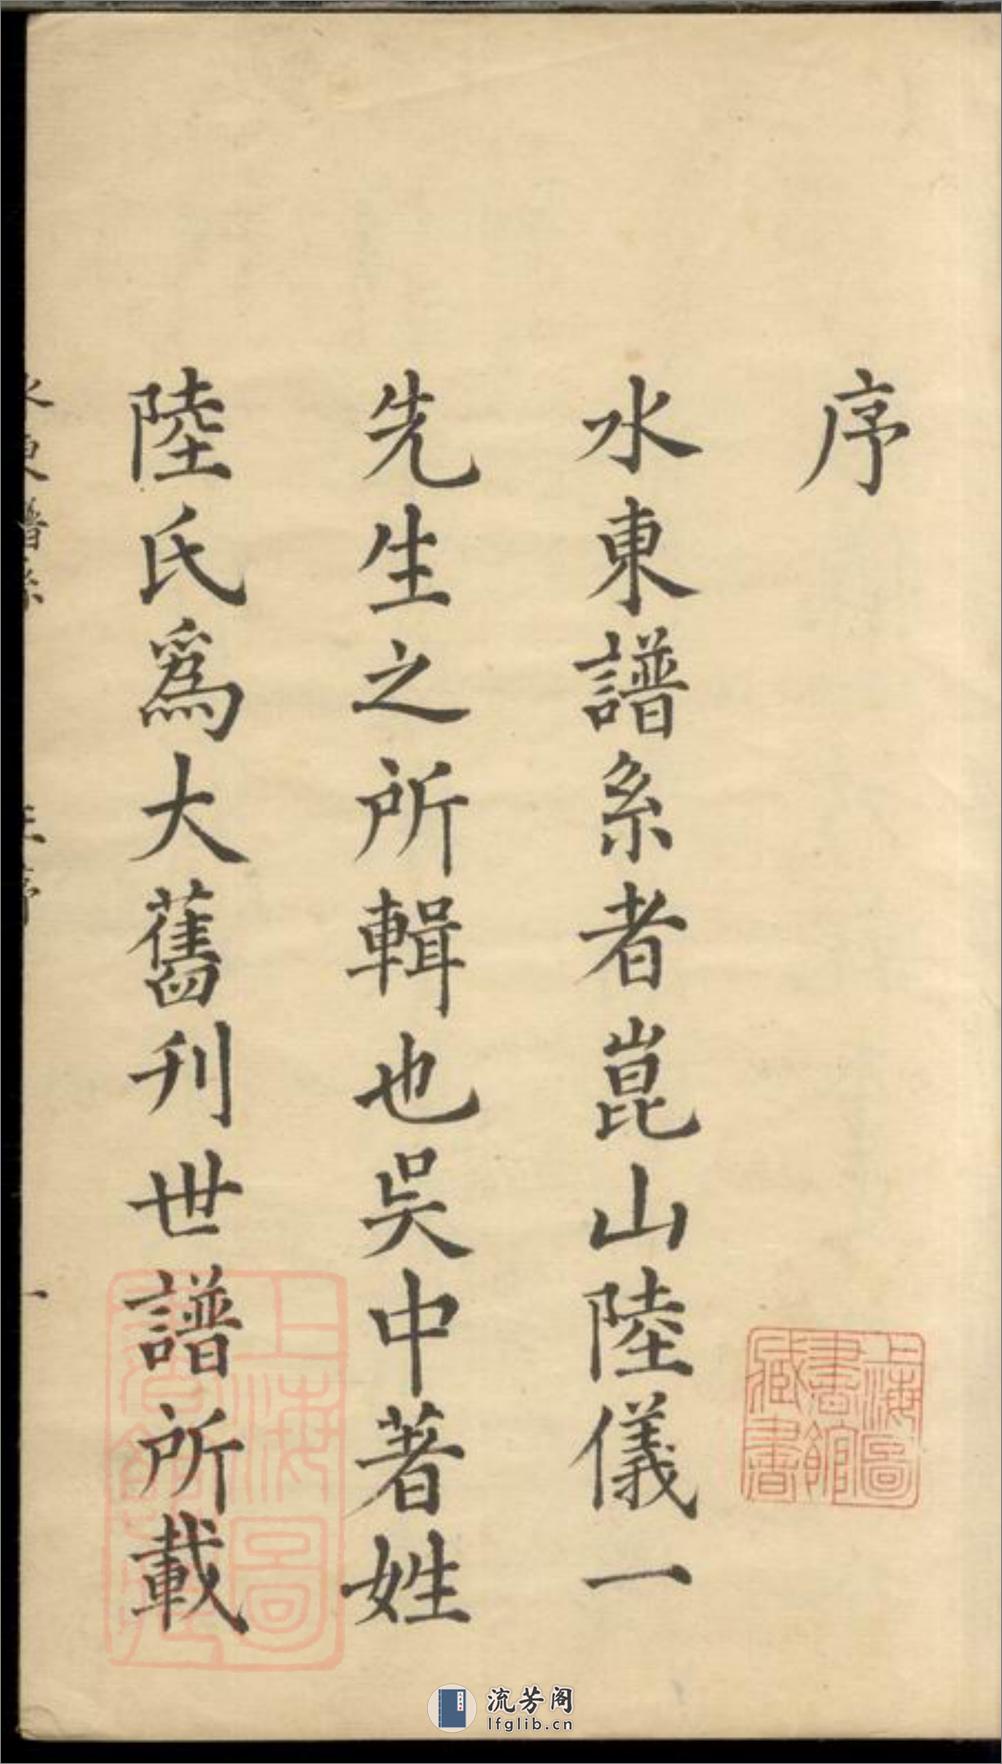 序
水東譜系者崑山陸儀一
先生之所輯也吳中著姓
陸氏爲大舊刋世譜所載
水東譜系 序 一
上海圖書館藏書
上海圖書館藏
流芳阁
lfglib.cn